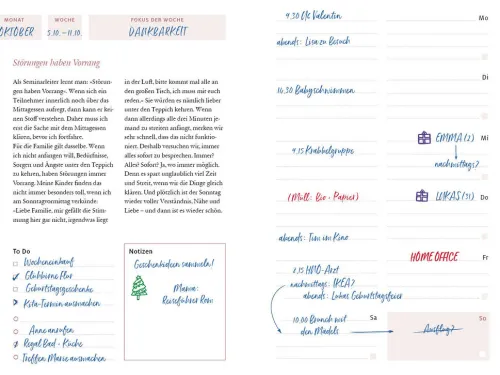 MONAT
OKTOBER
WOCHE
5.10. – 11.10.
FOKUS DER WOCHE
DANKBARKEIT
Störungen haben Vorrang
Als Seminarleiter lernt man: «Störun-
gen haben Vorrang». Wenn sich ein
Teilnehmer innerlich noch über das
Mittagessen aufregt, dann kann er kei-
nen Stoff verstehen. Daher muss ich
erst die Sache mit dem Mittagessen
klären, bevor ich fortfahre.
Für die Familie gilt dasselbe. Wenn
ich nicht anfangen will, Bedürfnisse,
Sorgen und Ängste unter den Teppich
zu kehren, haben Störungen immer
Vorrang. Meine Kinder finden das
nicht immer besonders toll, wenn ich
am Sonntagmorgen verkünde:
«Liebe Familie, mir gefällt die Stim-
mung hier gar nicht, irgendwas liegt
in der Luft, bitte kommt mal alle an
den großen Tisch, ich muss mit euch
reden.» Sie würden es nämlich lieber
unter den Teppich kehren. Wenn
dann allerdings alle drei Minuten je-
mand zu streiten anfängt, merken wir
sehr schnell, dass das nicht funktio-
niert. Deshalb versuchen wir, immer
alles sofort zu besprechen. Immer?
Alles? Sofort? Ja, wo immer möglich.
Denn es spart unglaublich viel Zeit
und Streit, wenn wir die Dinge gleich
klären. Und plötzlich ist der Sonntag
wieder voller Verständnis, Nähe und
Liebe – und dann ist es wieder schön.
To Do
Wocheneinkauf
Glühbirne Flur
Geburtstagsgeschenke
Kita-Termin ausmachen
Anne anrufen
Regal Bad + Küche
Treffen Marie ausmachen
Notizen
Geschenkideen sammeln!
Mama:
Reiseführer Rom
9.30 Uc Valentin
Mo
abends: Lisa zu Besuch
Di
16.30 Babyschwimmen
EMMA (2)
Mi
nachmittags?
9.15 Krabbelgruppe
(Müll: Bio + Papier)
LUKAS (31)
Do
abends: Tim im Kino
HOMEOFFICE
Fr
8.15 HNO-Arzt
nachmittags: IKEA?
abends: Lukas Geburtstagsfeier
Sa
So
10.00 Brunch mit
den Mädels
Ausflug?